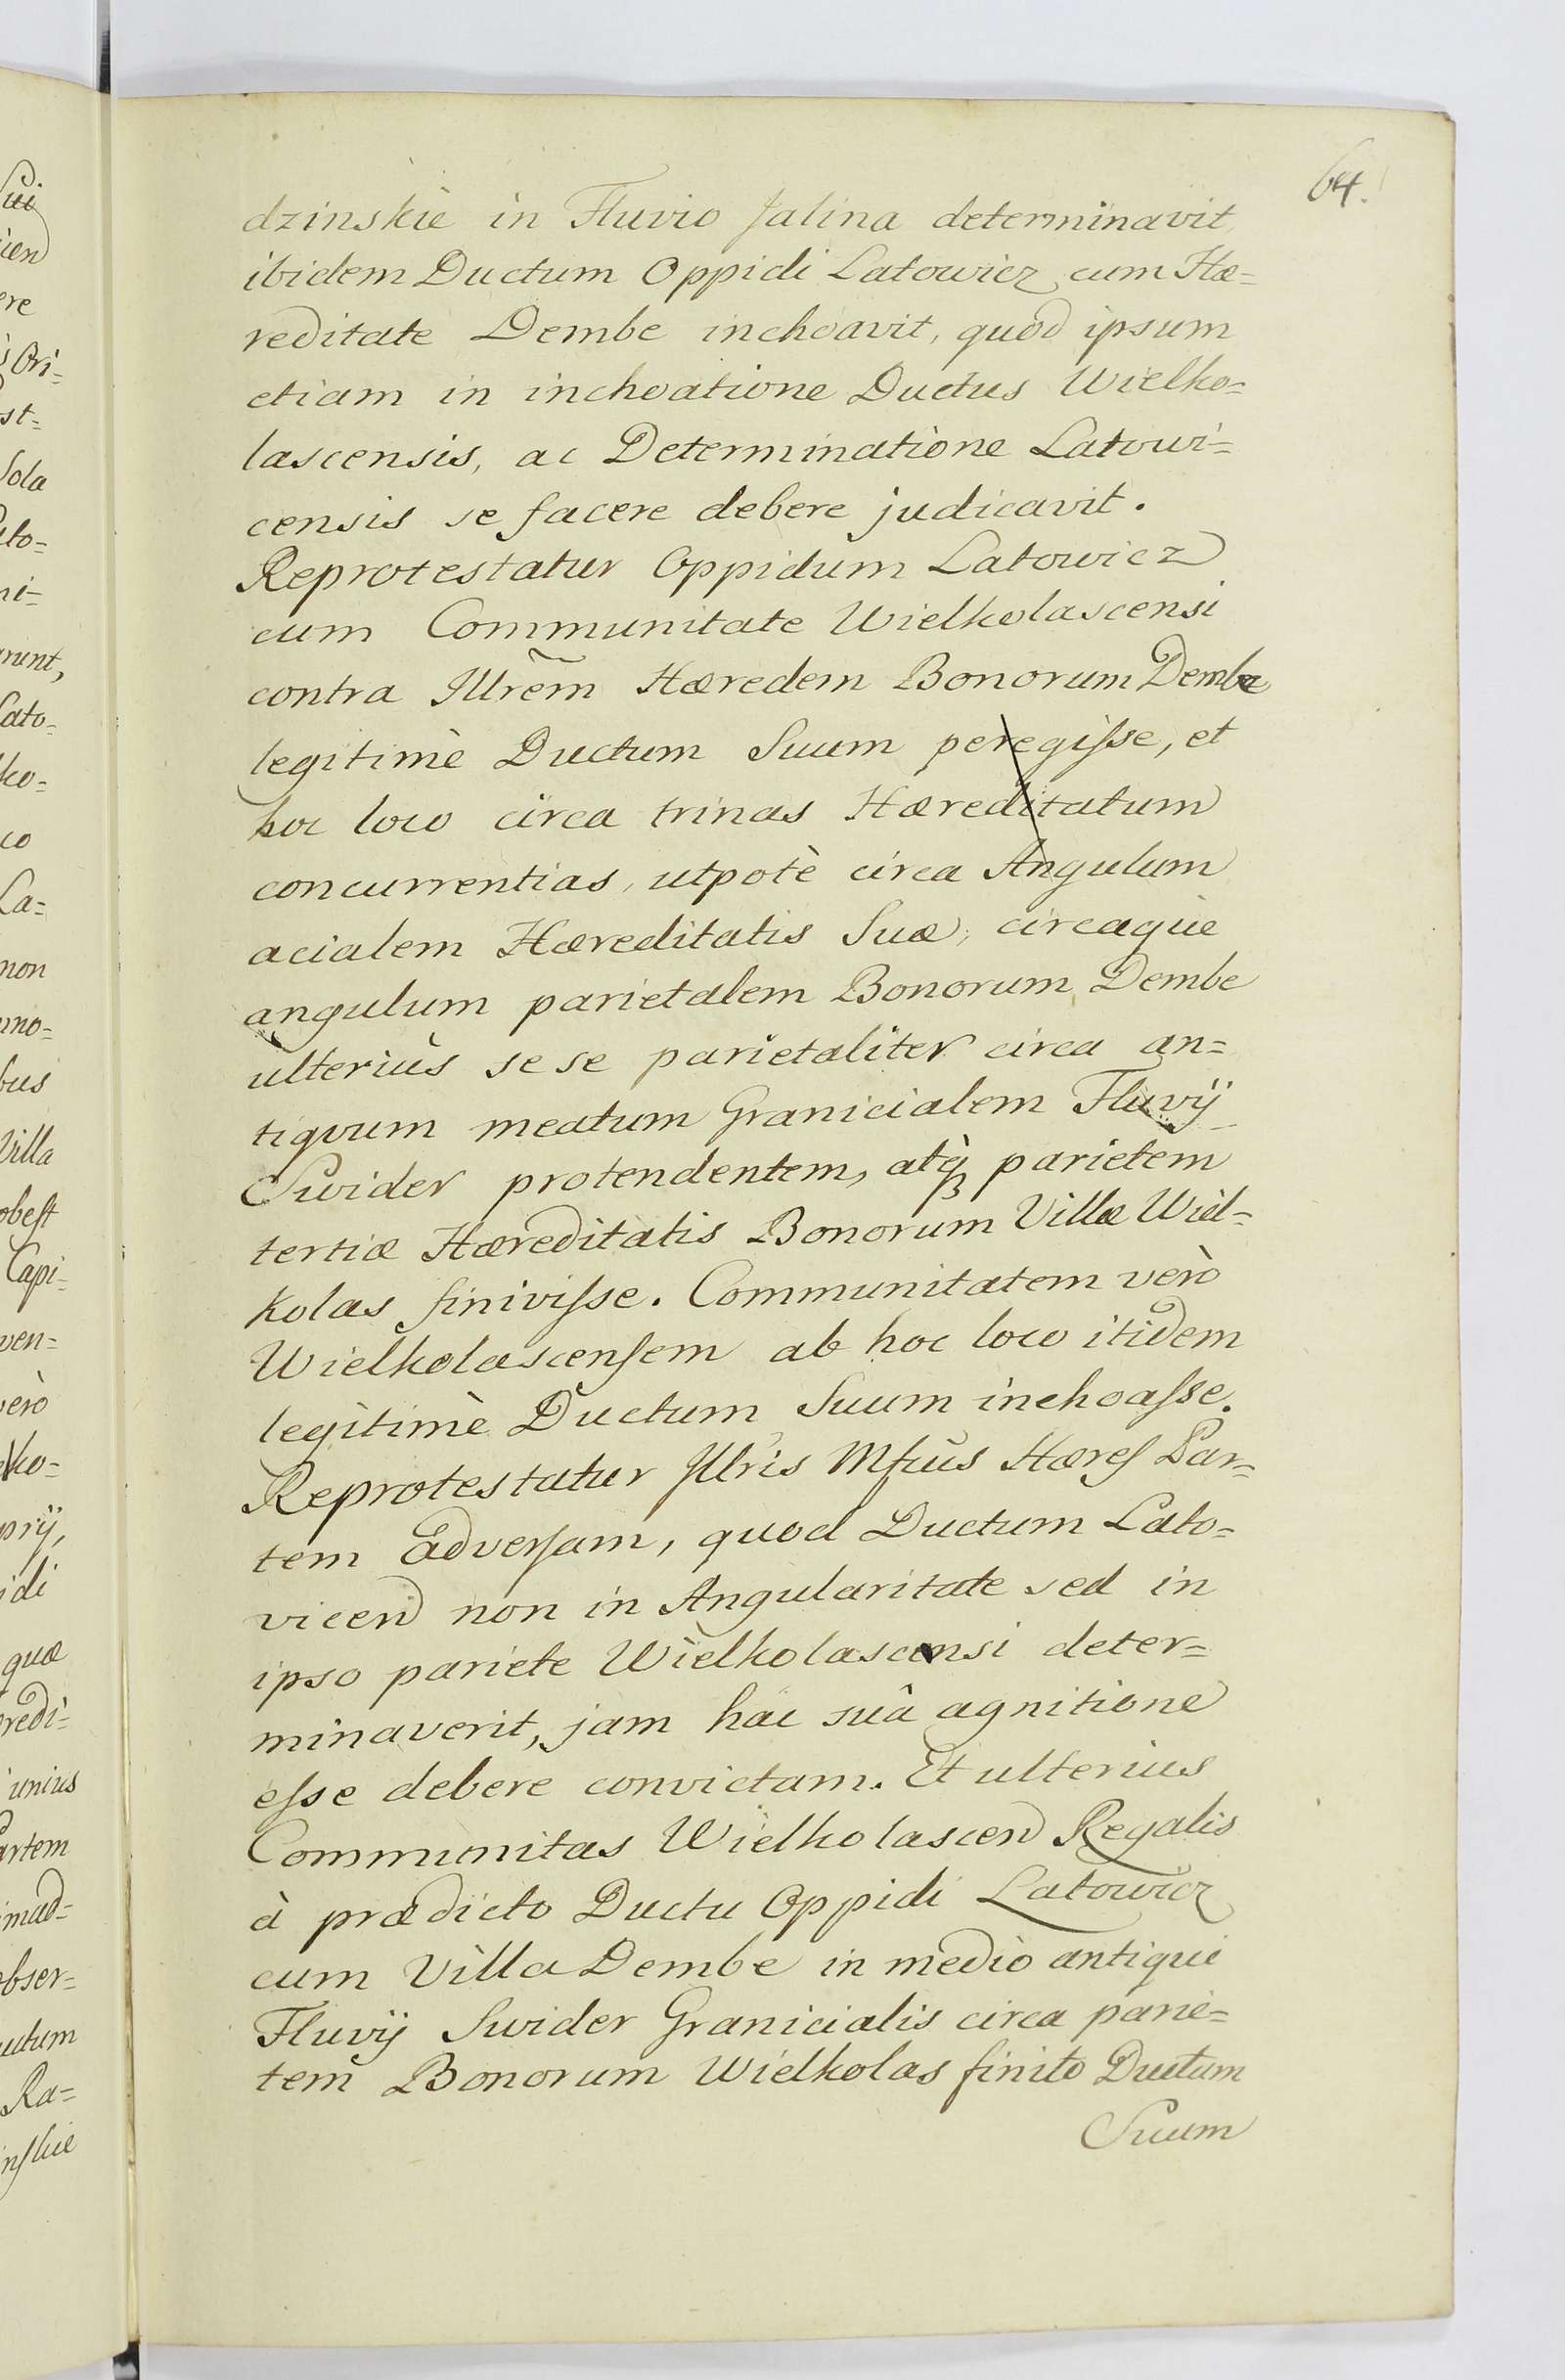 64.
dzinskie in Fluvio Jalina determinavit
ibidem Ductum Oppidi Latowicz cum Hæ=
reditate Dembe inchoavit, quod ipsum
etiam in inchoatione Ductus Wielko=
lascensis, ac Determinatione Latowi=
censis se facere debere judicavit.
Reprotestatur Oppidum Latowicz
cum Communitate Wielkolascensi
contra Jllrem̃ Hæredem Bonorum Dembe
legitimè Ductum Suum peregiſse, et
hoc loco circa trinas Hæreditatum
concurrentias, utpotè circa Angulum
acialem Hæreditatis Suæ, circaque
angulum parietalem Bonorum Dembe
ulteriùs sese parietaliter circa an=
tiquum meatum Granicialem Fluvÿ
Swider protendentem, atq̀ꝫ parietem
tertiæ Hæreditatis Bonorum Villæ Wiel=
kolas finiviſse. Communitatem verò
Wielkolascenſem ab hoc loco itidem
legitimè Ductum Suum inchoaſse.
Reprotestatur Jllris Mfcus Hæreſ Par=
tem Adverſam, quod Ductum Lato=
vicen non in Angularitate sed in
ipso pariete Wielkolascensi deter=
minaverit, jam hac suâ agnitione
eſse debere convictam. Et ulterius
Communitas Wielkolascen Regalis
à prædicto Ductu Oppidi Latowicz
cum Villa Dembe in medio antiqui
Fluvÿ Swider Granicialis circa parie=
tem Bonorum Wielkolas finito Ductum
Suum
Sui
icen
ere
Ori=
st=
Sola
ni=
runt,
Lato=
ko=
co
La=
non
mo=
bus
Villa
obeſt
Capi=
ven=
verò
lko=
prÿ,
idi
quæ
redi=
unius
artem
imad=
obser=
Ra=
inſkie